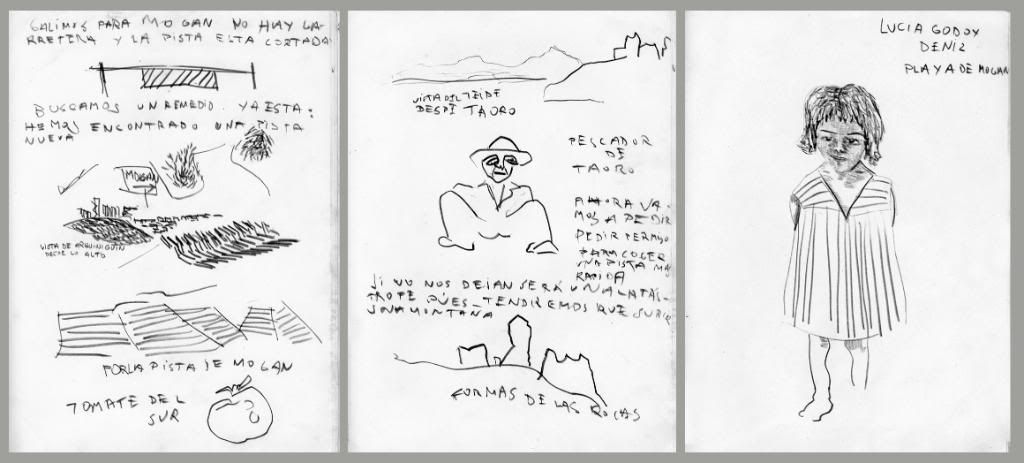 SALIMOS PARA MOGAN NO HAY CA-
RRETERA Y LA PISTA ESTA CORTADA
BUSCAMOS UN REMEDIO. YA ESTA:
HEMOS ENCONTRADO UNA PISTA
NUEVA
MOGAN
VISTA DE ARGUINIGUIN
DESDE LO ALTO
POR LA PISTA DE MOGAN
TOMATE DEL
SUR
VISTA DEL TEIDE
TAURO
PESCADOR
DE
TAORO
AHORA VA-
MOS A PEDIR
PEDIR PERMISO
PARA COGER
UNA PISTA MAS
RAPIDA
SI NO NOS DEJAN SERÁ UNA CATÁS-
TROFE PUES TENDREMOS QUE SUBIR
UNA MONTAÑA
FORMAS DE LAS ROCAS
LUCIA GODOY
DENIZ
PLAYA DE MOGAN